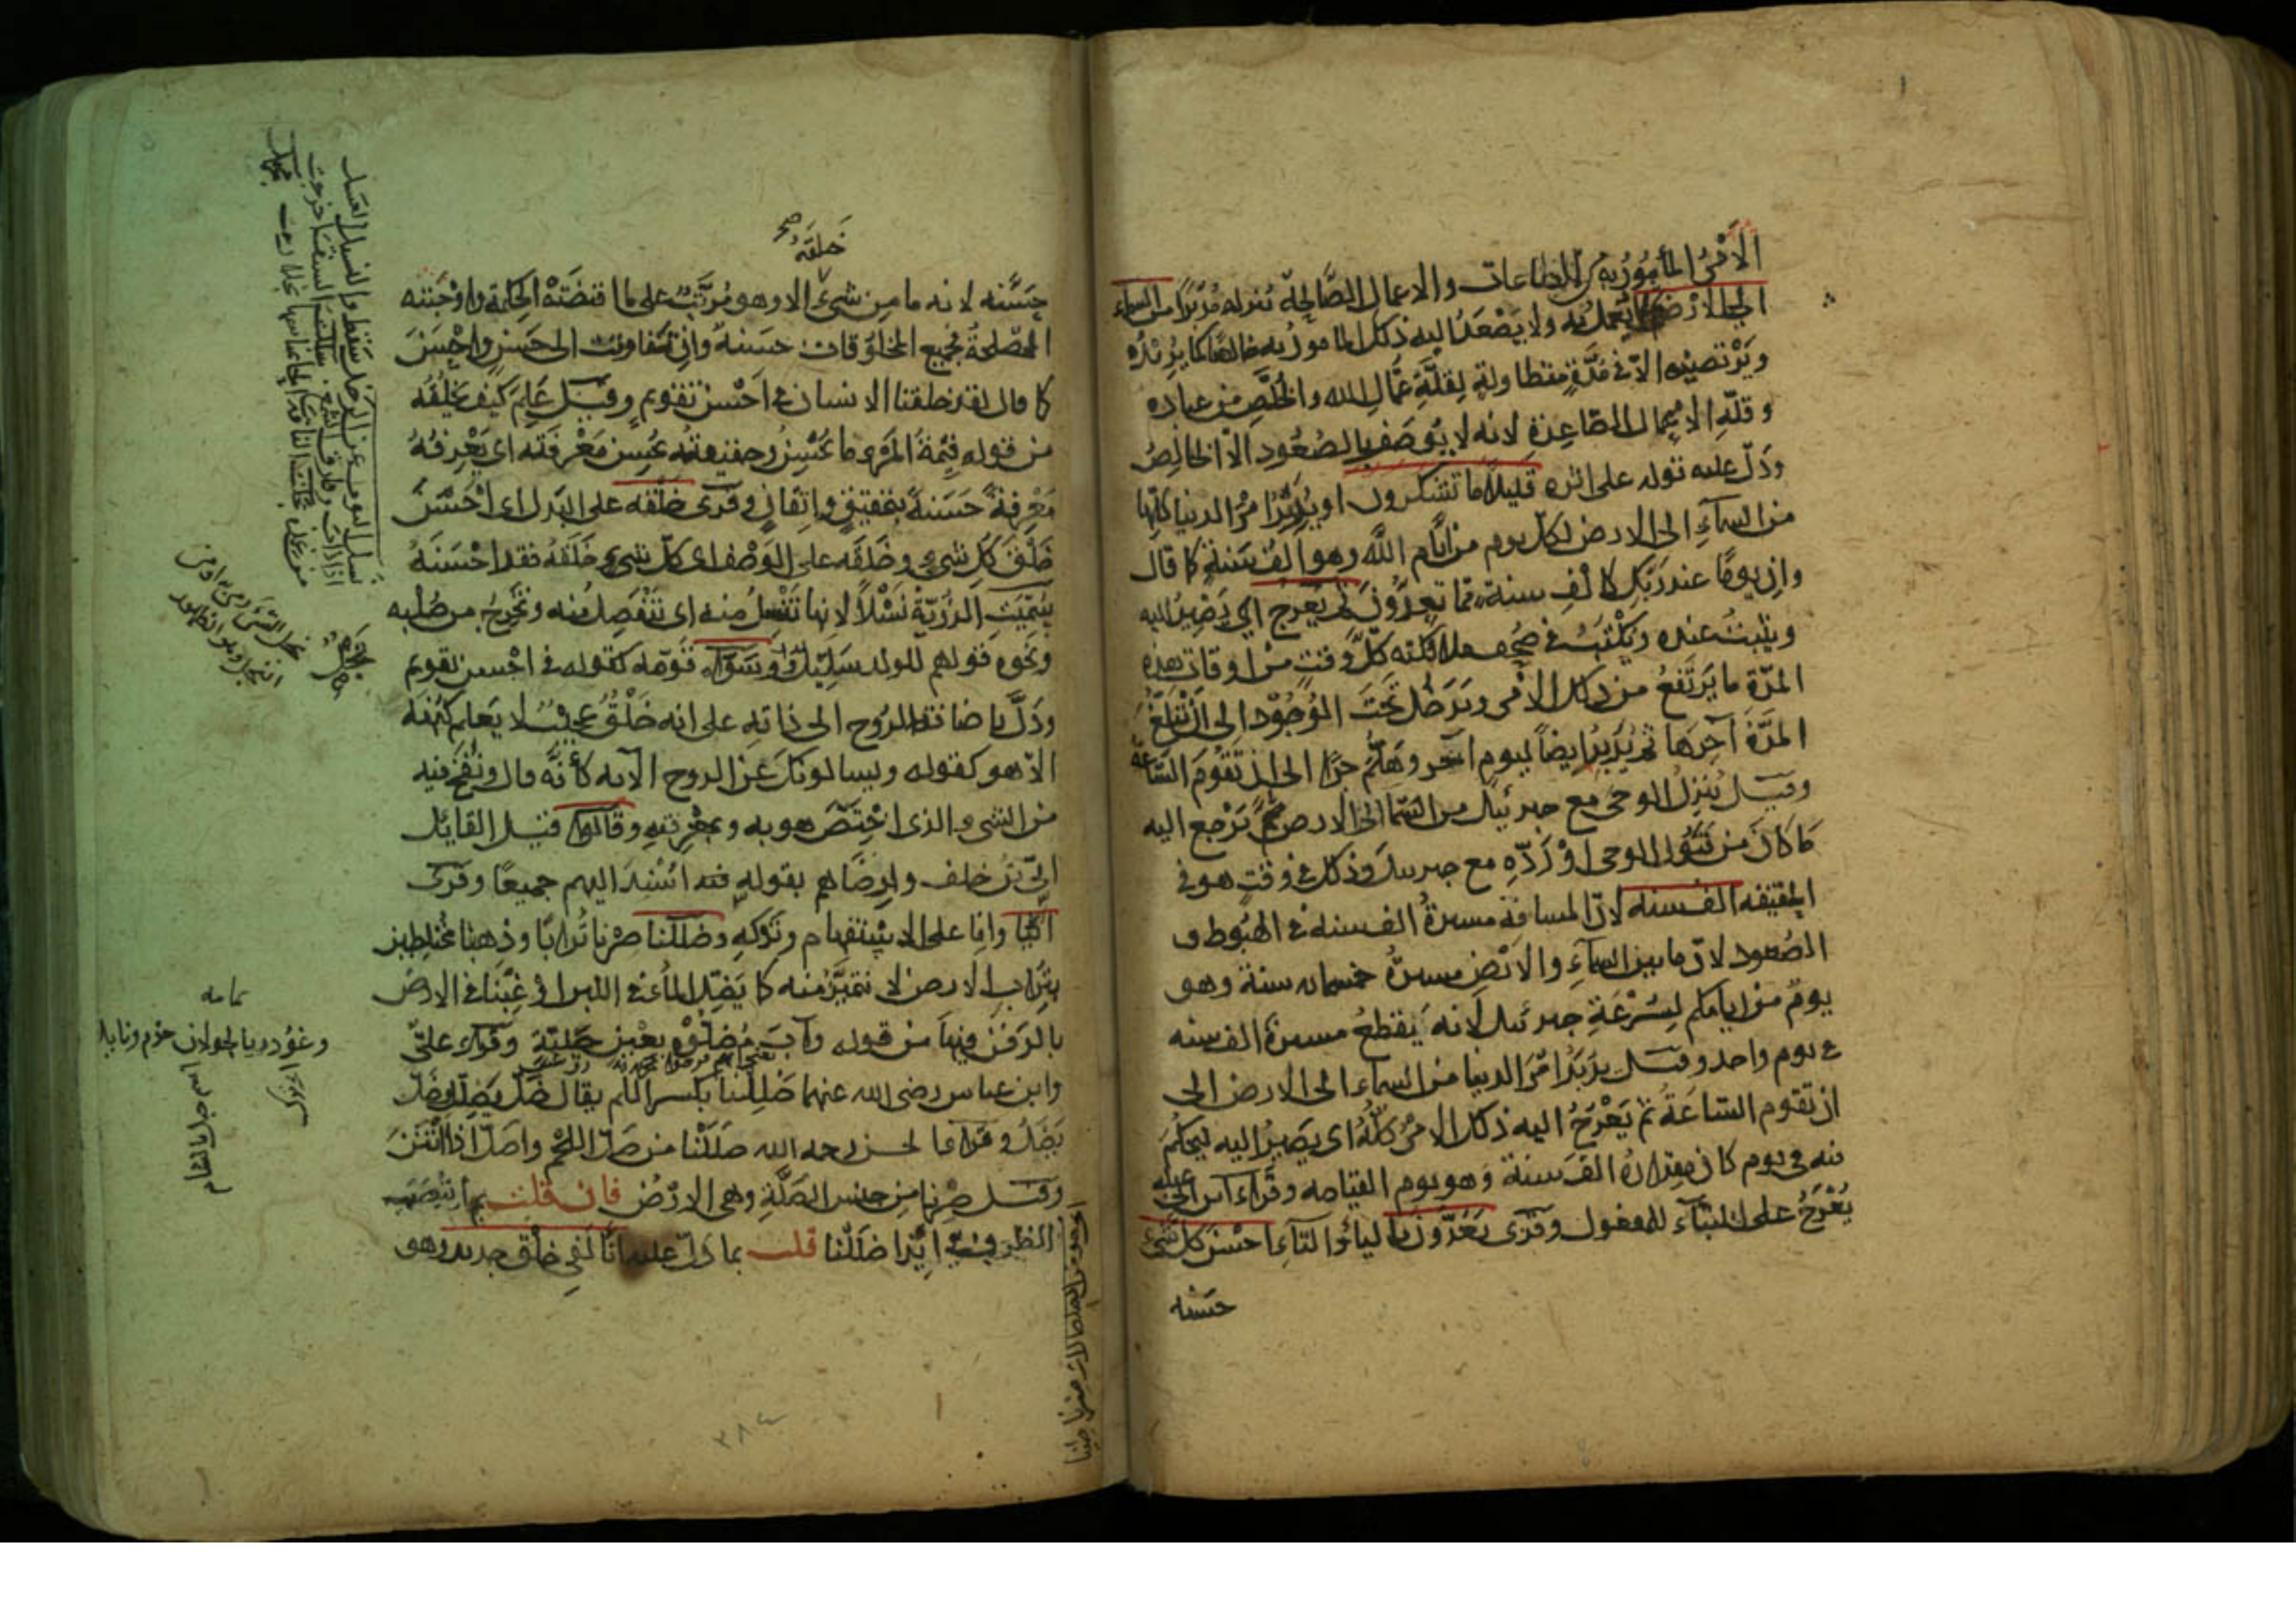 الأمْرُ المأمُورُ به من الطاعات والاعمال الصَّالحة يُنزله مُدَبَّرًا من السماء
الى الارض ولا يُعمل به ولا يَصْعَدُ اليه ذلك المامور به خالصًا كما يُريدُه
ويَرْتضيه الّا في مُدَّةٍ متطاولةٍ لِقلَّة عُمّال الله والخُلَّص من عباده
وقلّة الاعمال الصّاعِدة لانه لا يُوصَف بالصُعُود الّا الخالِصُ
ودَلّ عليه قوله على اثره قليلًا ما تشكرون او يُدَبِّرُ امْرَ الدنيا كلّها
من السمآءِ الى الارض لكل يوم من ايّام الله وهو الفُ سَنةٍ كما قال
وانّ يومًا عند ربّك كالْفِ سنة مما تعدُّونَ ثم يَعْرج اليه اي يَصِيرُ اليه
ويَثبتُ عنده ويُكْتَبُ في صُحُف ملائكته كلَّ وقتٍ من اوقات هذه
المدّة ما يَرتفعُ من ذلك الامر ويَدخل تحتَ الوُجُوْد الى انْ تَبلغَ
المدَّة آخِرَها ثم يُدَبّرُ ايضاً ليومٍ آخر وهَلُمَّ جرًّا الى ان تَقُومَ السّاعة
وقيل يُنزِلُ الوحيَ مع جبرئيل من السّما الى الارض ثمّ يَرْجع اليه
مَا كانَ من قَبُول الوحي اوْ رَدِّه مع جبرئيل وذلك في وقتٍ هو في
الحقيقه الف سنه لانّ المسافةَ مسيرةُ الف سنه في الهُبُوط و
الصُعود لانّ ما بين السماءِ والارْضِ مسيرةُ خمسمائه سنة وهو
يومٌ من ايامكم لِسُرْعَةِ جبرئيل لأنه يَقطعُ مسيرة الف سنه
في يوم واحد وقيل يُدَبّرُ امْرَ الدنيا من السماء الى الارض الى
ان تقوم السّاعَةُ ثمّ يَعْرُجُ اليه ذلك الامرُ كلّهُ اي يَصِيرُ اليه ليحكُمَ
فيه في يوم كان مقدارُهُ الفَ سنة وهو يوم القيامه وقَرَاء ابن ابي عبلة
يُعْرَجُ على البناء للمفعول وقرى يَعُدُّونَ باليآء والتآء احْسَنَ كل شىء
حسنه
خَلَقَهُ صح
حَسَّنه لانه ما من شىء الا وهو مُرَتَّبٌ على ما اقتضَتْهُ الحكمة واوْجَبَتْه
المصلحةُ فجميع المخلوقات حسَنةٌ وان تفاوتت الى حَسَنٍ واحْسَنَ
كما قال لقد خلقنا الانسان في احْسن تقويم وقيل عَلِمَ كيف يَخلُقُه
من قوله قيْمةُ المرْءِ ما يُحْسِنُ وحقيقتُه يُحسِن مَعْرفَته اى يَعْرفُهُ
مَعْرِفةً حَسَنةً بتحقيقٍ واتقانٍ وقرى خلْقَه على البَدل اى احْسَنَ
خَلْقَ كلِّ شىءٍ وخَلَقَه على الوَصْف اى كلّ شىء خَلَقَهُ فقد احْسَنَهُ
سُمّيَت الذُرّيّةُ نَسْلًا لانها تَنْسِلُ منه اى تَنْفَصِلُ منه وتَخْرجُ من صُلبه
ونحوه قولهم للولد سَلِيلٌ وسَوّاه قوّمه كقوله في احْسن تقويم
ودَلّ باضافة الروح الى ذاته على انه خَلْقٌ عجيبٌ لا يَعلم كُنْهَهُ
الّا هو كقوله ويسالونك عن الروح الآيه كأنّه قال ونَفَخَ فيه
من الشىء الذى اخْتَصَّ هو به وبمعْرِفتهِ وقَالوا قيل القايلُ
اُبيّ بن خلف ولِرضَاهم بقوله اُسْنِدَ اليهم جميعًا وقرى
ائنّا وانّا على الاسْتفهام وتركه وضلَلْنا صِرْنا تُرابًا وذهبنا مختلِطين
بتُراب الارض لا نتميّزُ منه كما يَضِلُّ المآءُ في اللبن اوْ غِبْنا في الارض
بالدفن فيها من قوله وآبَ مُضلّوه بعَيْنٍ جَليّةٍ وقرَاء عليٌّ
وابن عباس رضي الله عنهما ضَلِلنا بكسر اللام يقال ضَلّ يَضِلّ وضَلّ
يَضَلُّ وقرا الحسن رحمه الله صَلَلْنا من صَلّ اللحْم واصَلّ اذا انْتَنَ
وقيل صِرْنا من جنس الصَلّةِ وهي الارْضُ فان قلت بم انتصَبَ
الظرف في ائذا ضَلَلْنا قلت بما دَلّ عليه انّا لَفي خلْق جديد وهو
وغُودِرَ بالجولان حَزم ونايل